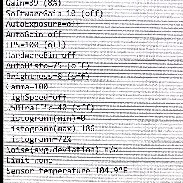 Gain=39 (8%)
SoftwareGain=10 (off)
AutoExposure=off
AutoGain=off
(off)
HardwareBin=off
AutoHisto=75 (off)
Brightness=8 (off)
Gamma=100
HighSpeed=off
(off)
Histogram(min)=0
Histogram(max)=186
Noise(avg.deviation)=n/a
Limit=none
Sensor temperature=104.9°F